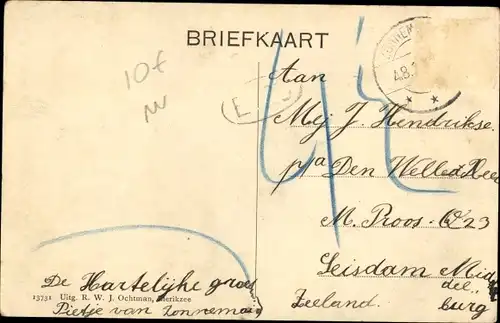 BRIEFKAART
10€
Aan
Mej J. Hendrikse
p/a Den Welled
M. Proos
Leisdam Mid
del
burg
Zeeland.
E
De Hartelijke groet
13731 Uitg. R. W. J. Ochtman, Zierikzee
Pietje van Zonnemaire